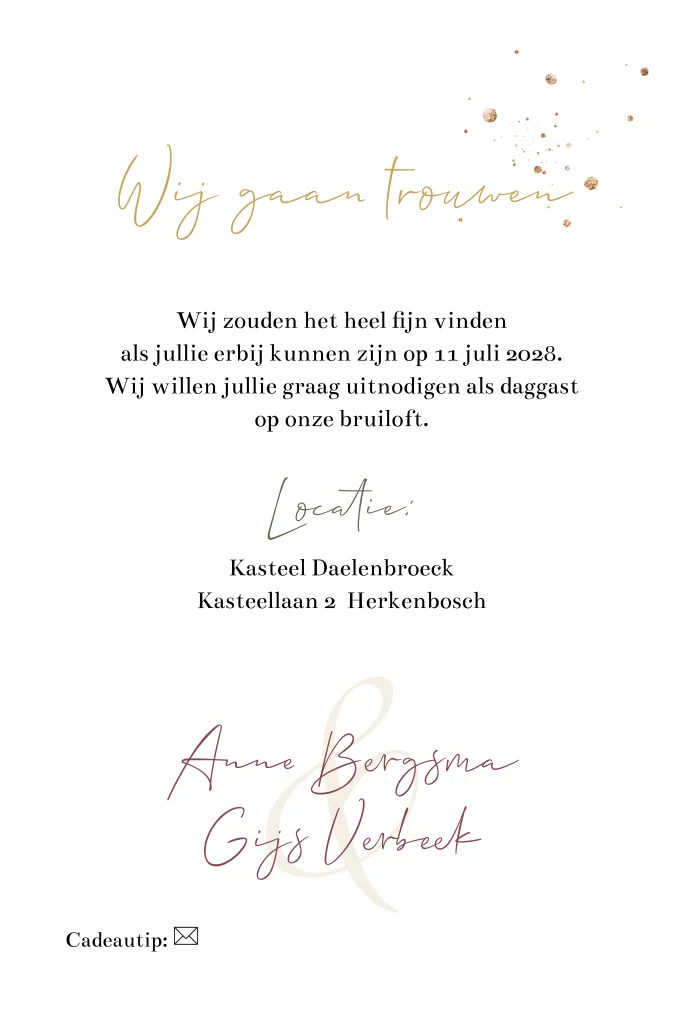 Wij gaan trouwen
Wij zouden het heel fijn vinden
als jullie erbij kunnen zijn op 11 juli 2028.
Wij willen jullie graag uitnodigen als daggast
op onze bruiloft.
Locatie:
Kasteel Daelenbroeck
Kasteellaan 2 Herkenbosch
Anne Bergsma
&
Gijs Verbeek
Cadeautip: